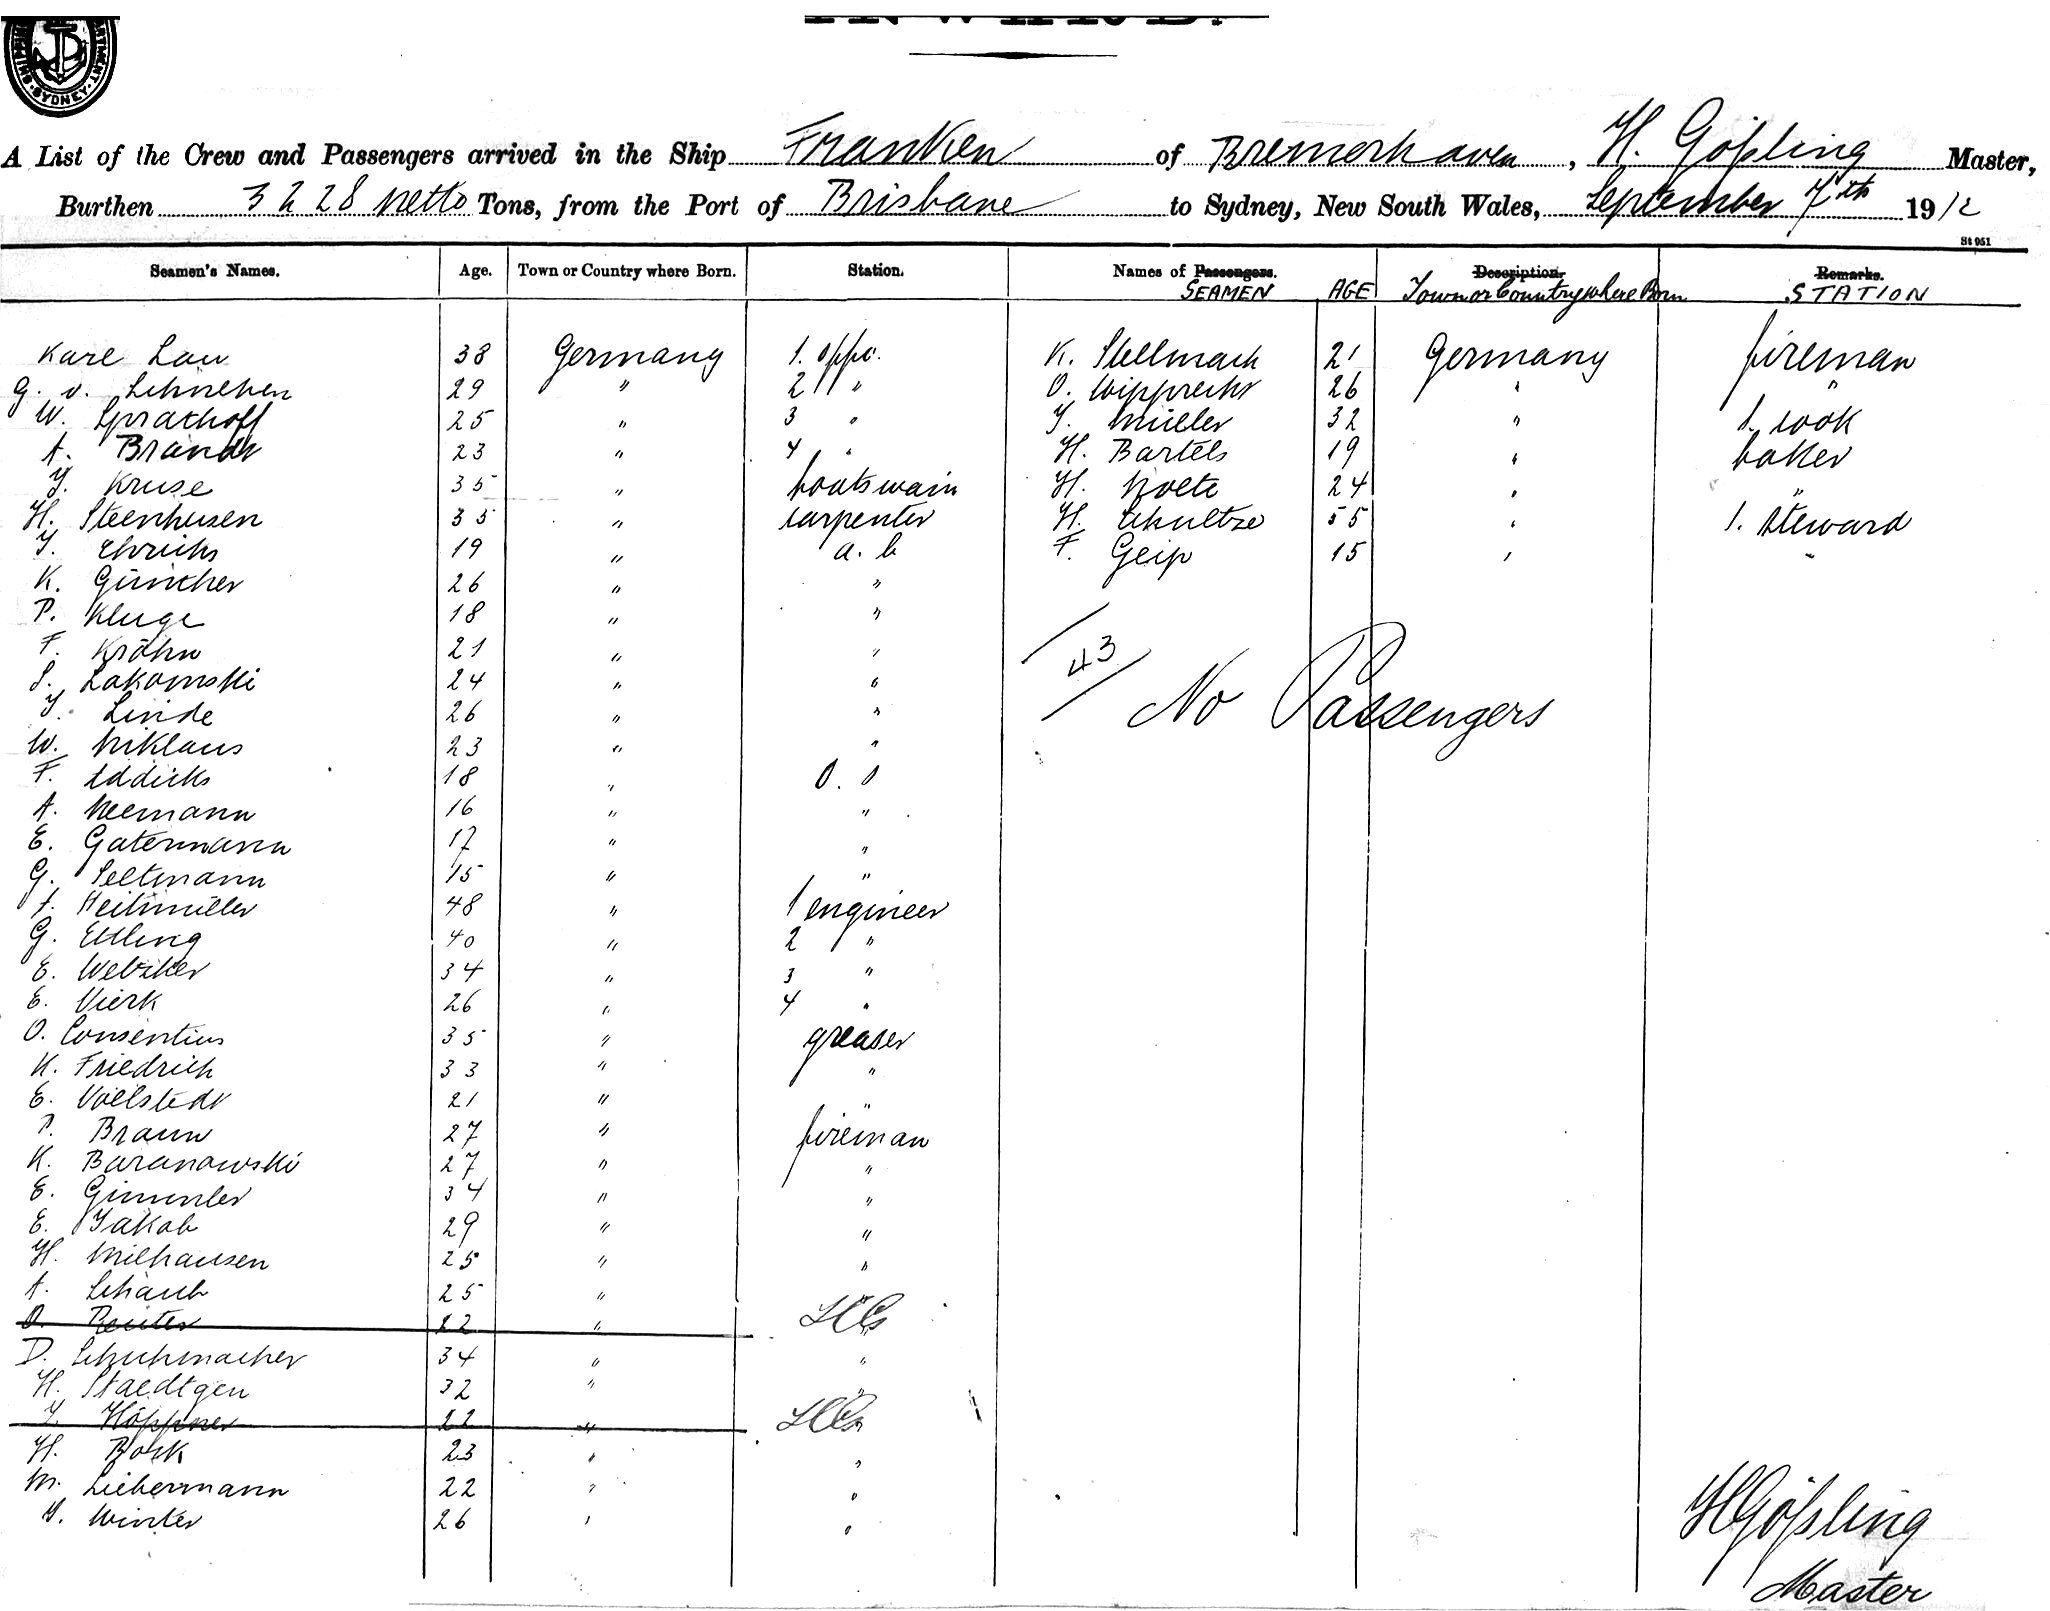 SYDNEY
A List of the Crew and Passengers arrived in the Ship Franken of Bremerhaven, H. Gößling Master,
Burthen 3228 netto Tons, from the Port of Brisbane to Sydney, New South Wales, September 7th 1912
St 951
Seamen's Names. Age. Town or Country where Born. Station. Names of Passengers. Description. Remarks.
SEAMEN AGE Town or Country where Born STATION
Karl Lau 38 Germany 1. offc. K. Stellmach 21 Germany fireman
G. v. Lehneben 29 " 2 " O. Wipprecht 26 " "
W. Sprathoff 25 " 3 " J. Müller 32 " 1. cook
A. Brandt 23 " 4 " H. Bartels 19 " baker
J. Kruse 35 " boatswain H. Nolte 24 " "
H. Steenhusen 35 " carpenter H. Schultze 55 " 1. steward
J. Ehrichs 19 " a. b F. Geip 15 " "
K. Günther 26 " "
P. Kluge 18 " "
F. Kröhn 21 " "
S. Lakomski 24 " "
J. Linde 26 " "
W. Niklaus 23 " "
F. Eddicks 18 " O. S
A. Neemann 16 " "
E. Gatermann 17 " "
G. Seltmann 15 " "
F. Heitmüller 48 " 1 engineer
G. Ettling 40 " 2 "
E. Webeker 34 " 3 "
E. Vierk 26 " 4 "
O. Consentius 35 " greaser
K. Friedrich 33 " "
E. Vollstedt 21 " "
P. Braun 27 " fireman
K. Baranowski 27 " "
E. Gimmler 34 " "
E. Jakob 29 " "
H. Milhausen 25 " "
A. Schaub 25 " "
O. Reuter 22 "
D. Schuhmacher 34 " "
H. Staedtgen 32 " "
J. Höppner 22 "
H. Bork 23 " "
M. Liebermann 22 " "
J. Winter 26 " "
43
No Passengers
H Gößling
Master